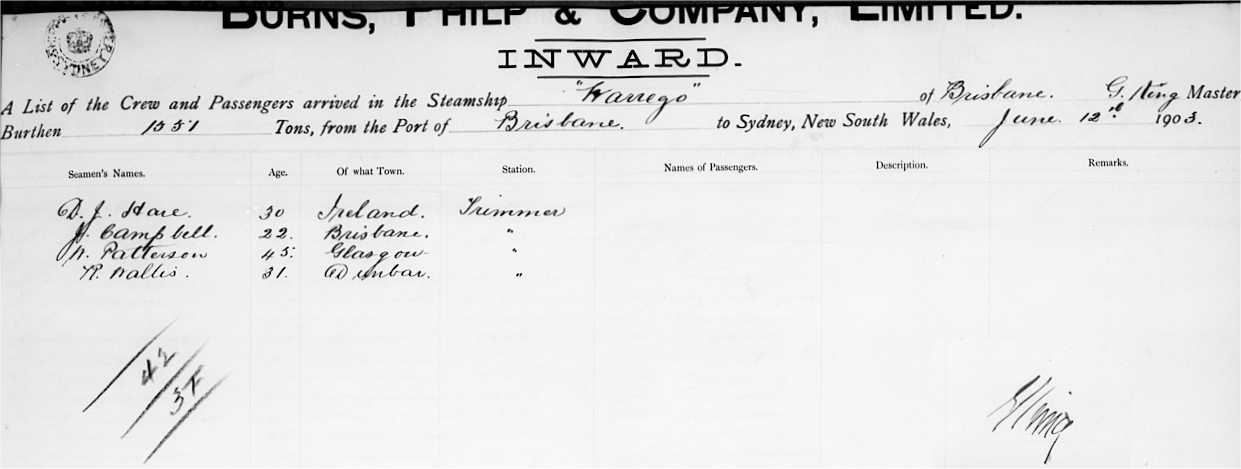 BURNS, PHILP & COMPANY, LIMITED.
SYDNEY
INWARD.
A List of the Crew and Passengers arrived in the Steamship "Warrego" of Brisbane. G. King Master
Burthen 1551 Tons, from the Port of Brisbane. to Sydney, New South Wales, June. 12th 1903.
Seamen's Names. Age. Of what Town. Station. Names of Passengers. Description. Remarks.
D. J. Hare. 30 Ireland. Trimmer
J. Campbell. 22. Brisbane. "
W. Patterson 45. Glasgow "
R. Wallis. 31. Dunbar. "
42
37
G King